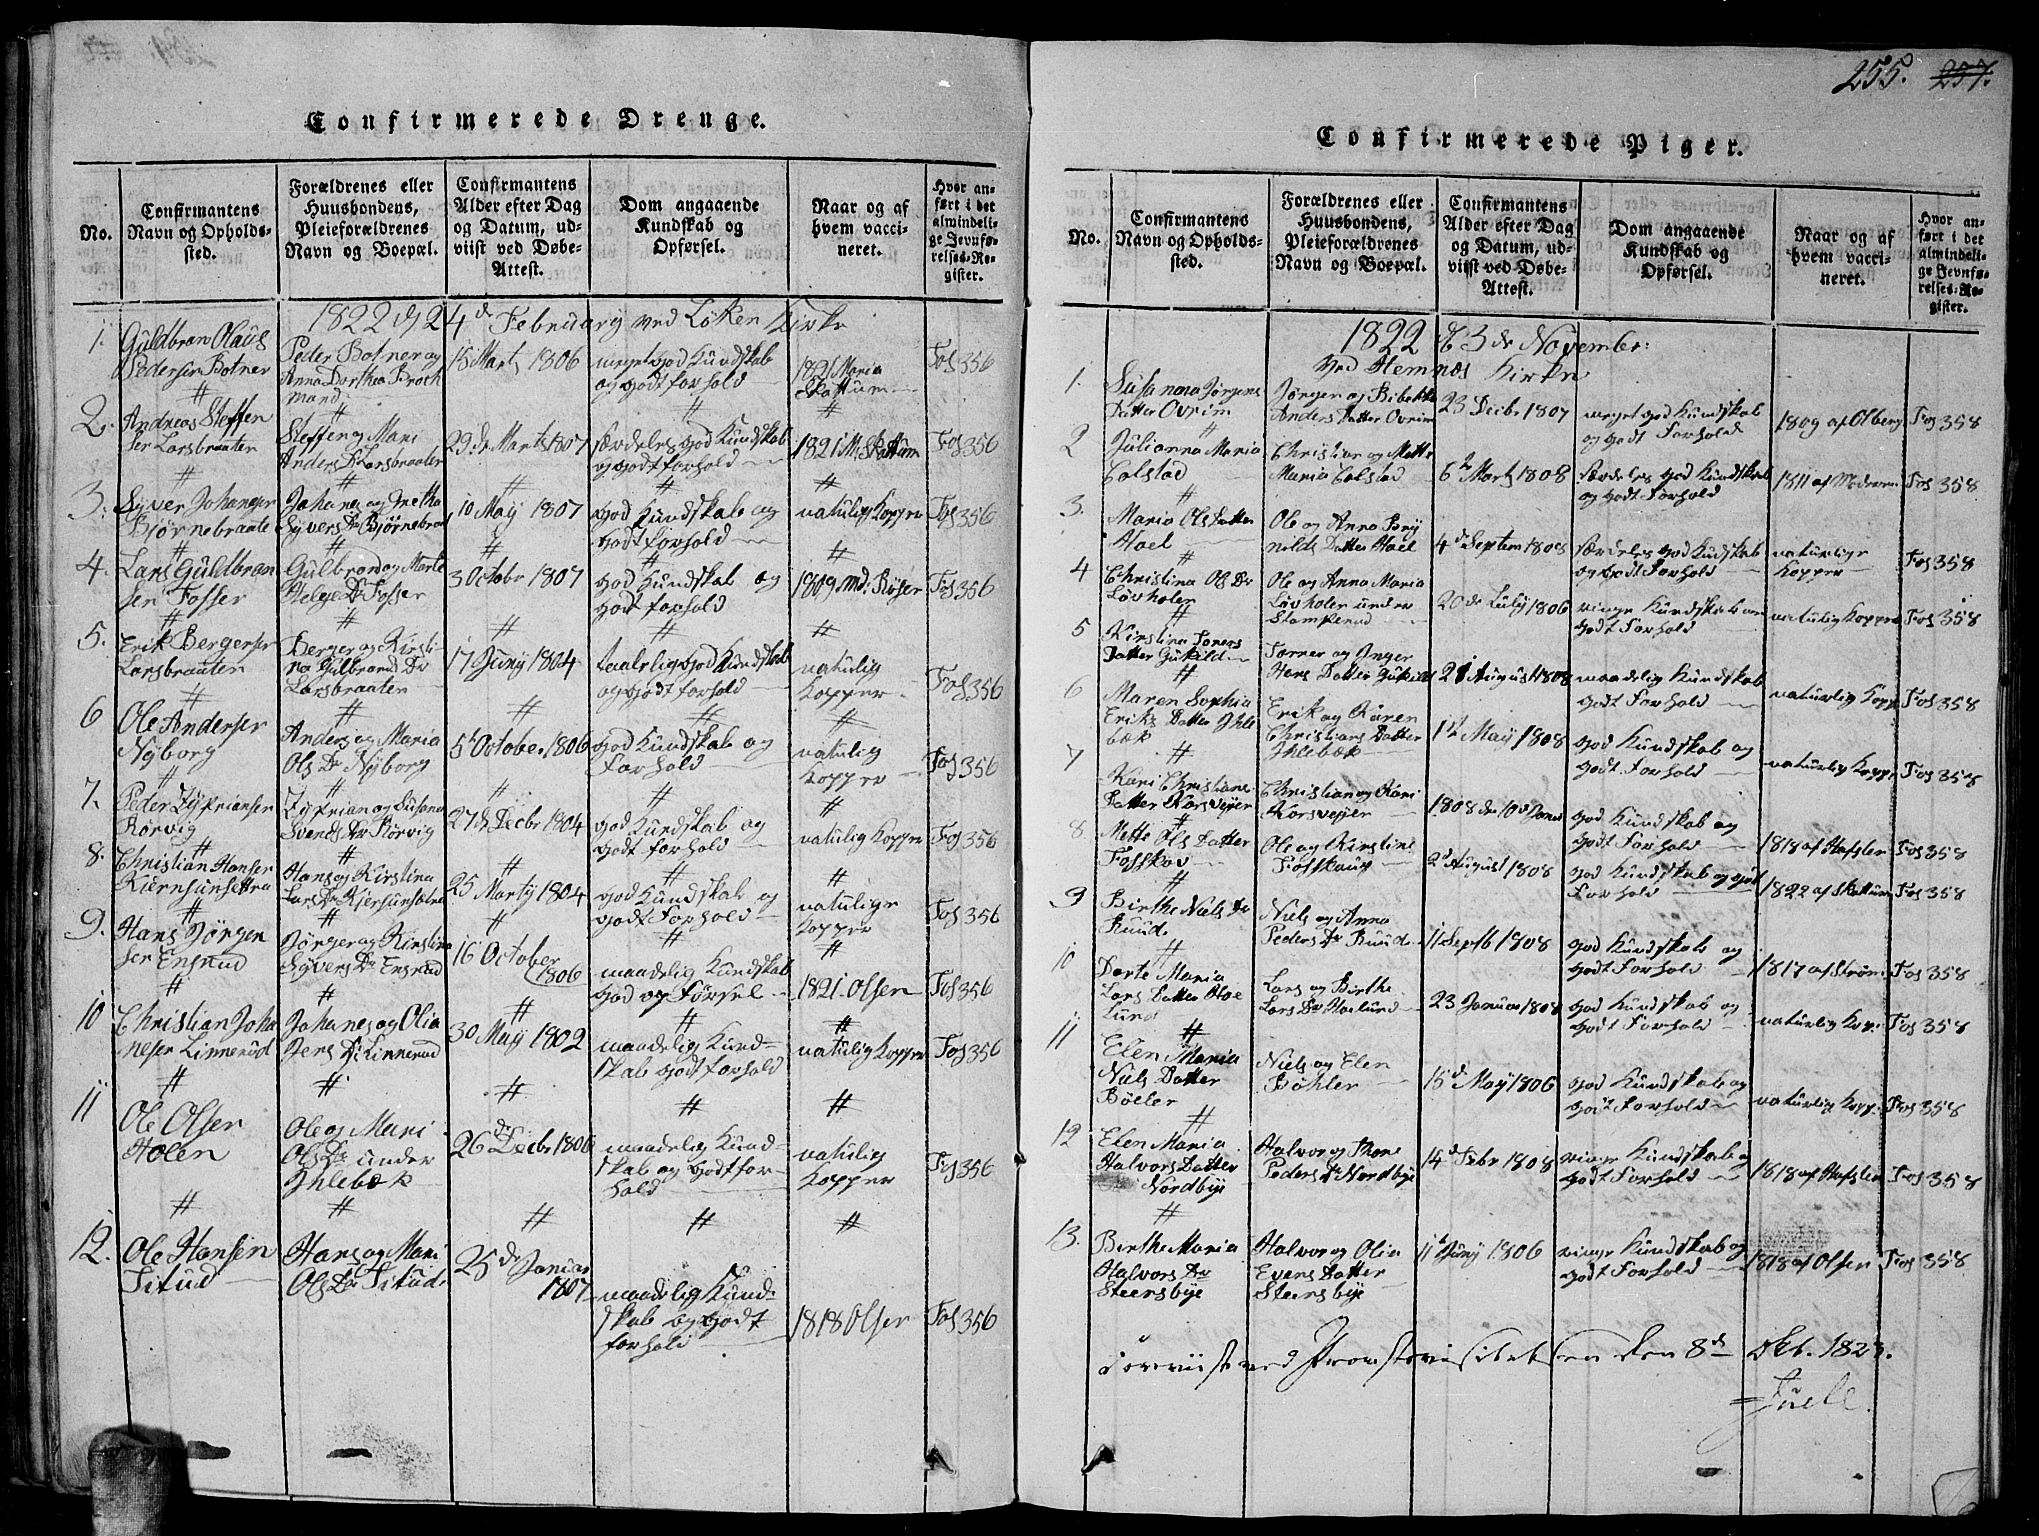 255. 257.
Confirmerede Drenge.
No.
Confirmantens
Navn og Opholds-
sted.
Forældrenes eller
Huusbondens,
Pleieforældrenes
Navn og Boepæl.
Confirmantens
Alder efter Dag
og Datum, ud-
viist ved Døbe-
Attest.
Dom angaaende
Kundskab og
Opførsel.
Naar og af
hvem vacci-
neret.
Hvor an-
ført i det
almindeli-
ge Jevnfø-
relses-Re-
gister.
1822 d 24de February ved Löken Kirke
1. Guldbran Olaus
Pedersen Botner
Peder Botner og
Anna Dorthea Broch
mand
15 Marts 1806
meget god Kundskab
og godt forhold
1821 Maria
Skattum
Fol 356
2. Andreas Steffen
sen Larsbraaten
Steffen og Mari
Anders Dr Larsbraaten
29de Marts 1807
særdeles god Kundskab
og godt forhold
1821 M. Skattum
Fol 356
3. Syver Johanesen
Bjørnebraate
Johanes og Gretha
Syvers Dr Bjørnebraa
10 May 1807
god Kundskab og
godt forhold
natulig Kopper
Fol 356
4. Lars Guldbran
sen Fosser
Gulbran og Marte
Helge Dr Fosser
3 Octobr 1807
god Kundskab og
godt forhold
1809 md: Böser
Fol 356
5. Erik Bergersen
Larsbraaten
Berger og Kirsti-
na Gulbrands Dr
Larsbraaten
17 Juny 1804
taalelig god Kundskab
og godt forhold
natulig
Kopper
Fol 356
6 Ole Andersen
Nyborg
Anders og Maria
Ols Dr Nyborg
5t October 1806
god Kundskab og
Forhold
natulig
Kopper
Fol 356
7. Peder Zyprianser
Rörvig
Zyprian og Susana
Svends Dr Rörvig
27de Decbr 1804
god Kundskab og
godt forhold
natulig Koppre
Fol 356
8. Christian Hansen
Kiernsunsettra
Hans og Kirstina
Lars Dr Kjersunsetre
25 Marty 1804
god Kundskab og
godt Forhold
natulige
Kopper
Fol 356
9. Hans Jørgen
sen Ensrud
Jørgen og Kirstina
Syvers Dr Ensrud
16 October
1806
maadelig Kundskab
god opførsel
1821. Olsen
Fol 356
10 Christian Joha
nesen Linnerud
Johanes og Olia
Jens Dr Linnerud
30 May 1802
maadelig Kund-
skab godt forhold
natulig Kopper
Fol 356
11 Ole Olsen
Holen
Ole og Mari
Ols Dr under
Ihlebæk
26de Decbr 1806
maadelig Kund-
skab og godt for-
hold
natulig
Kopper
Fol 356
12. Ole Hansen
Situd
Hans og Mari
Ols Dr Situd
25de Januar
1807
maadelig Kund-
skab og godt
forhold
1818 Olsen
Fol 356
Confirmerede Piger.
No.
Confirmantens
Navn og Opholds-
sted.
Forældrenes eller
Huusbondens,
Pleieforældrenes
Navn og Boepæl.
Confirmantens
Alder efter Dag
og Datum, ud-
viist ved Døbe-
Attest.
Dom angaaende
Kundskab og
Opførsel.
Naar og af
hvem vacci-
neret.
Hvor an-
ført i det
almindeli-
ge Jevnfø-
relses-Re-
gister.
1822 d 3de November
Ved Hemnes Kirke
1. Susanna Jørgens
Datter Ovrim
Jørgen og Bibekka
Anders Datter Ovrim
23 Decbr 1807
meget god Kundskab
og godt Forhold
1809 af Olberg
Fol 358
2 Julianna Maria
Colstad
Christian og Mette
Maria Colstad
6te Marts 1808
særdeles god Kundskab
og godt Forhold
1811 af
Fol 358
3. Maria Ols Datter
Hoel
Ole og Anna Bry
nilds Datter Hoel
4de Septem 1808
særdeles god Kundskab
og godt Forhold
naturlige
Kopper
Fol 358
4 Christina Ols Dr
Lövholen
Ole og Anna Maria
Lövholen under
Stamperud
20de July 1806
ringe Kundskab men
godt Forhold
naturlig Koppre
Fol 358
5 Kirstina Torers
Datter Gukild
Torner og Inger
Hans Datter Gukild
21 August 1808
maadelig Kundskab
godt Forhold
naturlig Kopp
Fol 358
6 Maren Sophia
Eriks Datter Ihle
bæk
Erik og Karen
Christians Datter
Ihlebæk
1st May 1808
god Kundskab og
godt Forhold
naturlig Koppr
Fol 358
7 Kari Christians
Datter Korsvejer
Christian og Kari
Korsvejer
1808 den 10d
god Kundskab og
godt Forhold
1818 af Hafsler
Fol 358
8. Mette Ols Datter
Fosskov
Ole og Kirstine
Fosskaug
2d August 1808
god Kundskab og godt
Forhold
1822 af Skattum
Fol 358
9 Birthe Niels Dr
Ruud
Niels og Anna
Peders Dr Ruud
11 Septb 1808
god Kundskab og
godt Forhold
1817 af Ström
Fol 358
10 Dorte Maria
Lars Datter Hoe
Lund
Lars og Birthe
Lars Dr Hoelund
23 Januar 1808
god Kundskab og
godt Forhold
naturlig Kop.
Fol 358
11 Elen Maria
Niels Datter
Böeler
Niels og Elen
Böhler
15d May 1806
god Kundskab og
godt Forhold
naturlig Kopp.
Fol 358
12 Elen Maria
Halvors Datter
Nordbye
Halvor og Thore
Peders Dr Nordbye
14d Febr 1808
ringe Kundskab og
godt Forhold
1818 af Hafsler
Fol 358
13. Birthe Maria
Halvors Dr
Steensbye
Halvor og Olia
Evens Datter
Steensbye
11t Juny 1806
ringe Kundskab og
godt Forhold
1818 af Olsen
Fol 358
Foreviist ved Provstevisitatsen den 8de Oct. 1823.
Juell